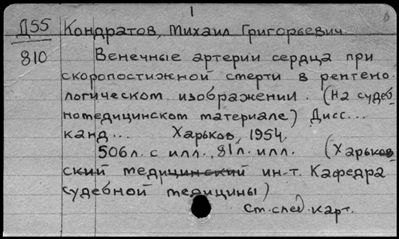 1
Д55 Кондратов, Михаил Григорьевич.
810 Венечные артерии сердца при
скоропостижной смерти в рентено-
логическом изображении. (На судеб-
номедицинском материале) Дисс...
канд... Харьков, 1954.
506л. с илл., 81л. илл. (Харьков
ский медицинский ин-т. Кафедра
судебной медицины)
См. след. карт.